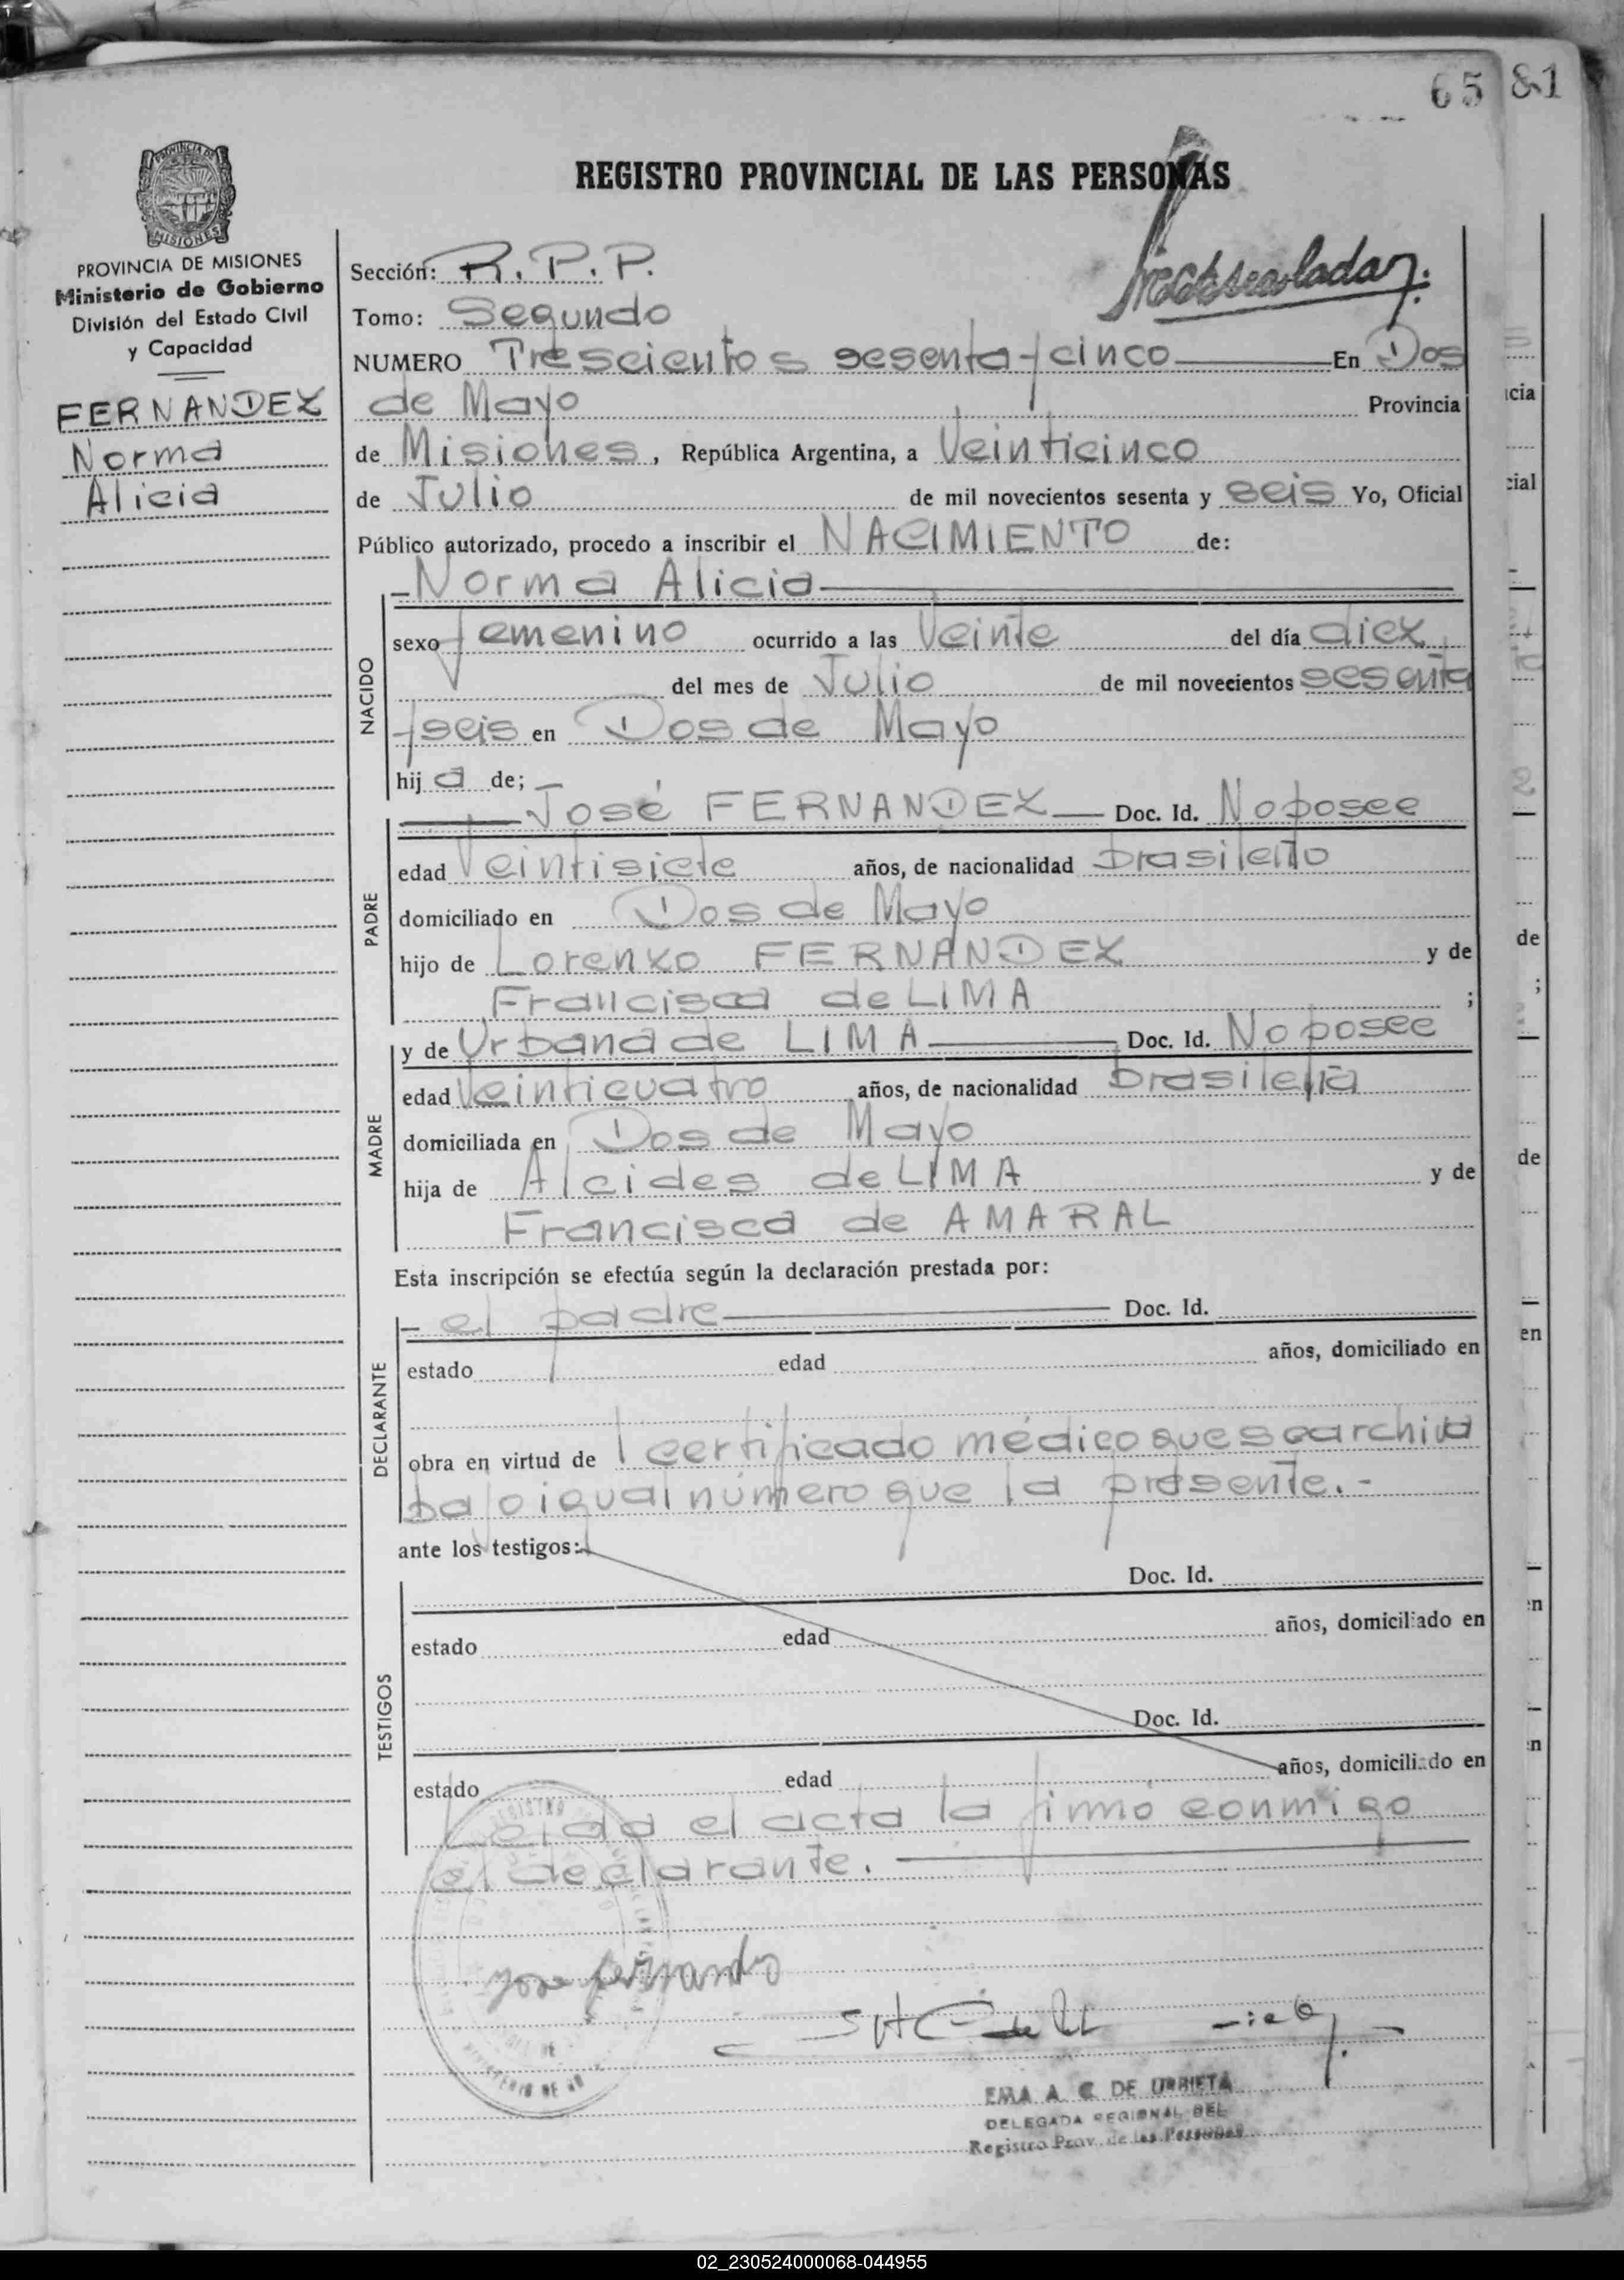 65 81
REGISTRO PROVINCIAL DE LAS PERSONAS
PROVINCIA DE MISIONES
Ministerio de Gobierno
División del Estado Civil
y Capacidad
FERNANDEZ
Norma
Alicia
Sección: R.P.P.
Tomo: Segundo
NUMERO Trescientos sesenta y cinco En Dos
de Mayo Provincia
de Misiones, República Argentina, a Veinticinco
de Julio de mil novecientos sesenta y seis Yo, Oficial
Público autorizado, procedo a inscribir el NACIMIENTO de:
NACIDO
- Norma Alicia
sexo femenino ocurrido a las Veinte del día diez
del mes de Julio de mil novecientos sesenta
y seis en Dos de Mayo
hij a de;
PADRE
José FERNANDEZ Doc. Id. No posee
edad Veintisiete años, de nacionalidad brasileño
domiciliado en Dos de Mayo
hijo de Lorenzo FERNANDEZ y de
Francisca de LIMA ;
MADRE
y de Urbana de LIMA Doc. Id. No posee
edad Veinticuatro años, de nacionalidad brasileña
domiciliada en Dos de Mayo
hija de Alcides de LIMA y de
Francisca de AMARAL
Esta inscripción se efectúa según la declaración prestada por:
DECLARANTE
- el padre Doc. Id.
estado edad años, domiciliado en
obra en virtud de certificado médico que se archiva
bajo igual número que la presente.-
ante los testigos:
TESTIGOS
Doc. Id.
estado edad años, domiciliado en
Doc. Id.
estado edad años, domiciliado en
Leida el acta la firmo conmigo
el declarante.
EMA A. C. DE URBIETA
DELEGADA REGIONAL DEL
Registro Prov. de las Personas
02_230524000068-044955